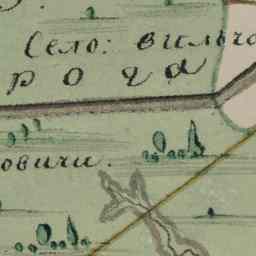 Село: вильча
рога
овичи.